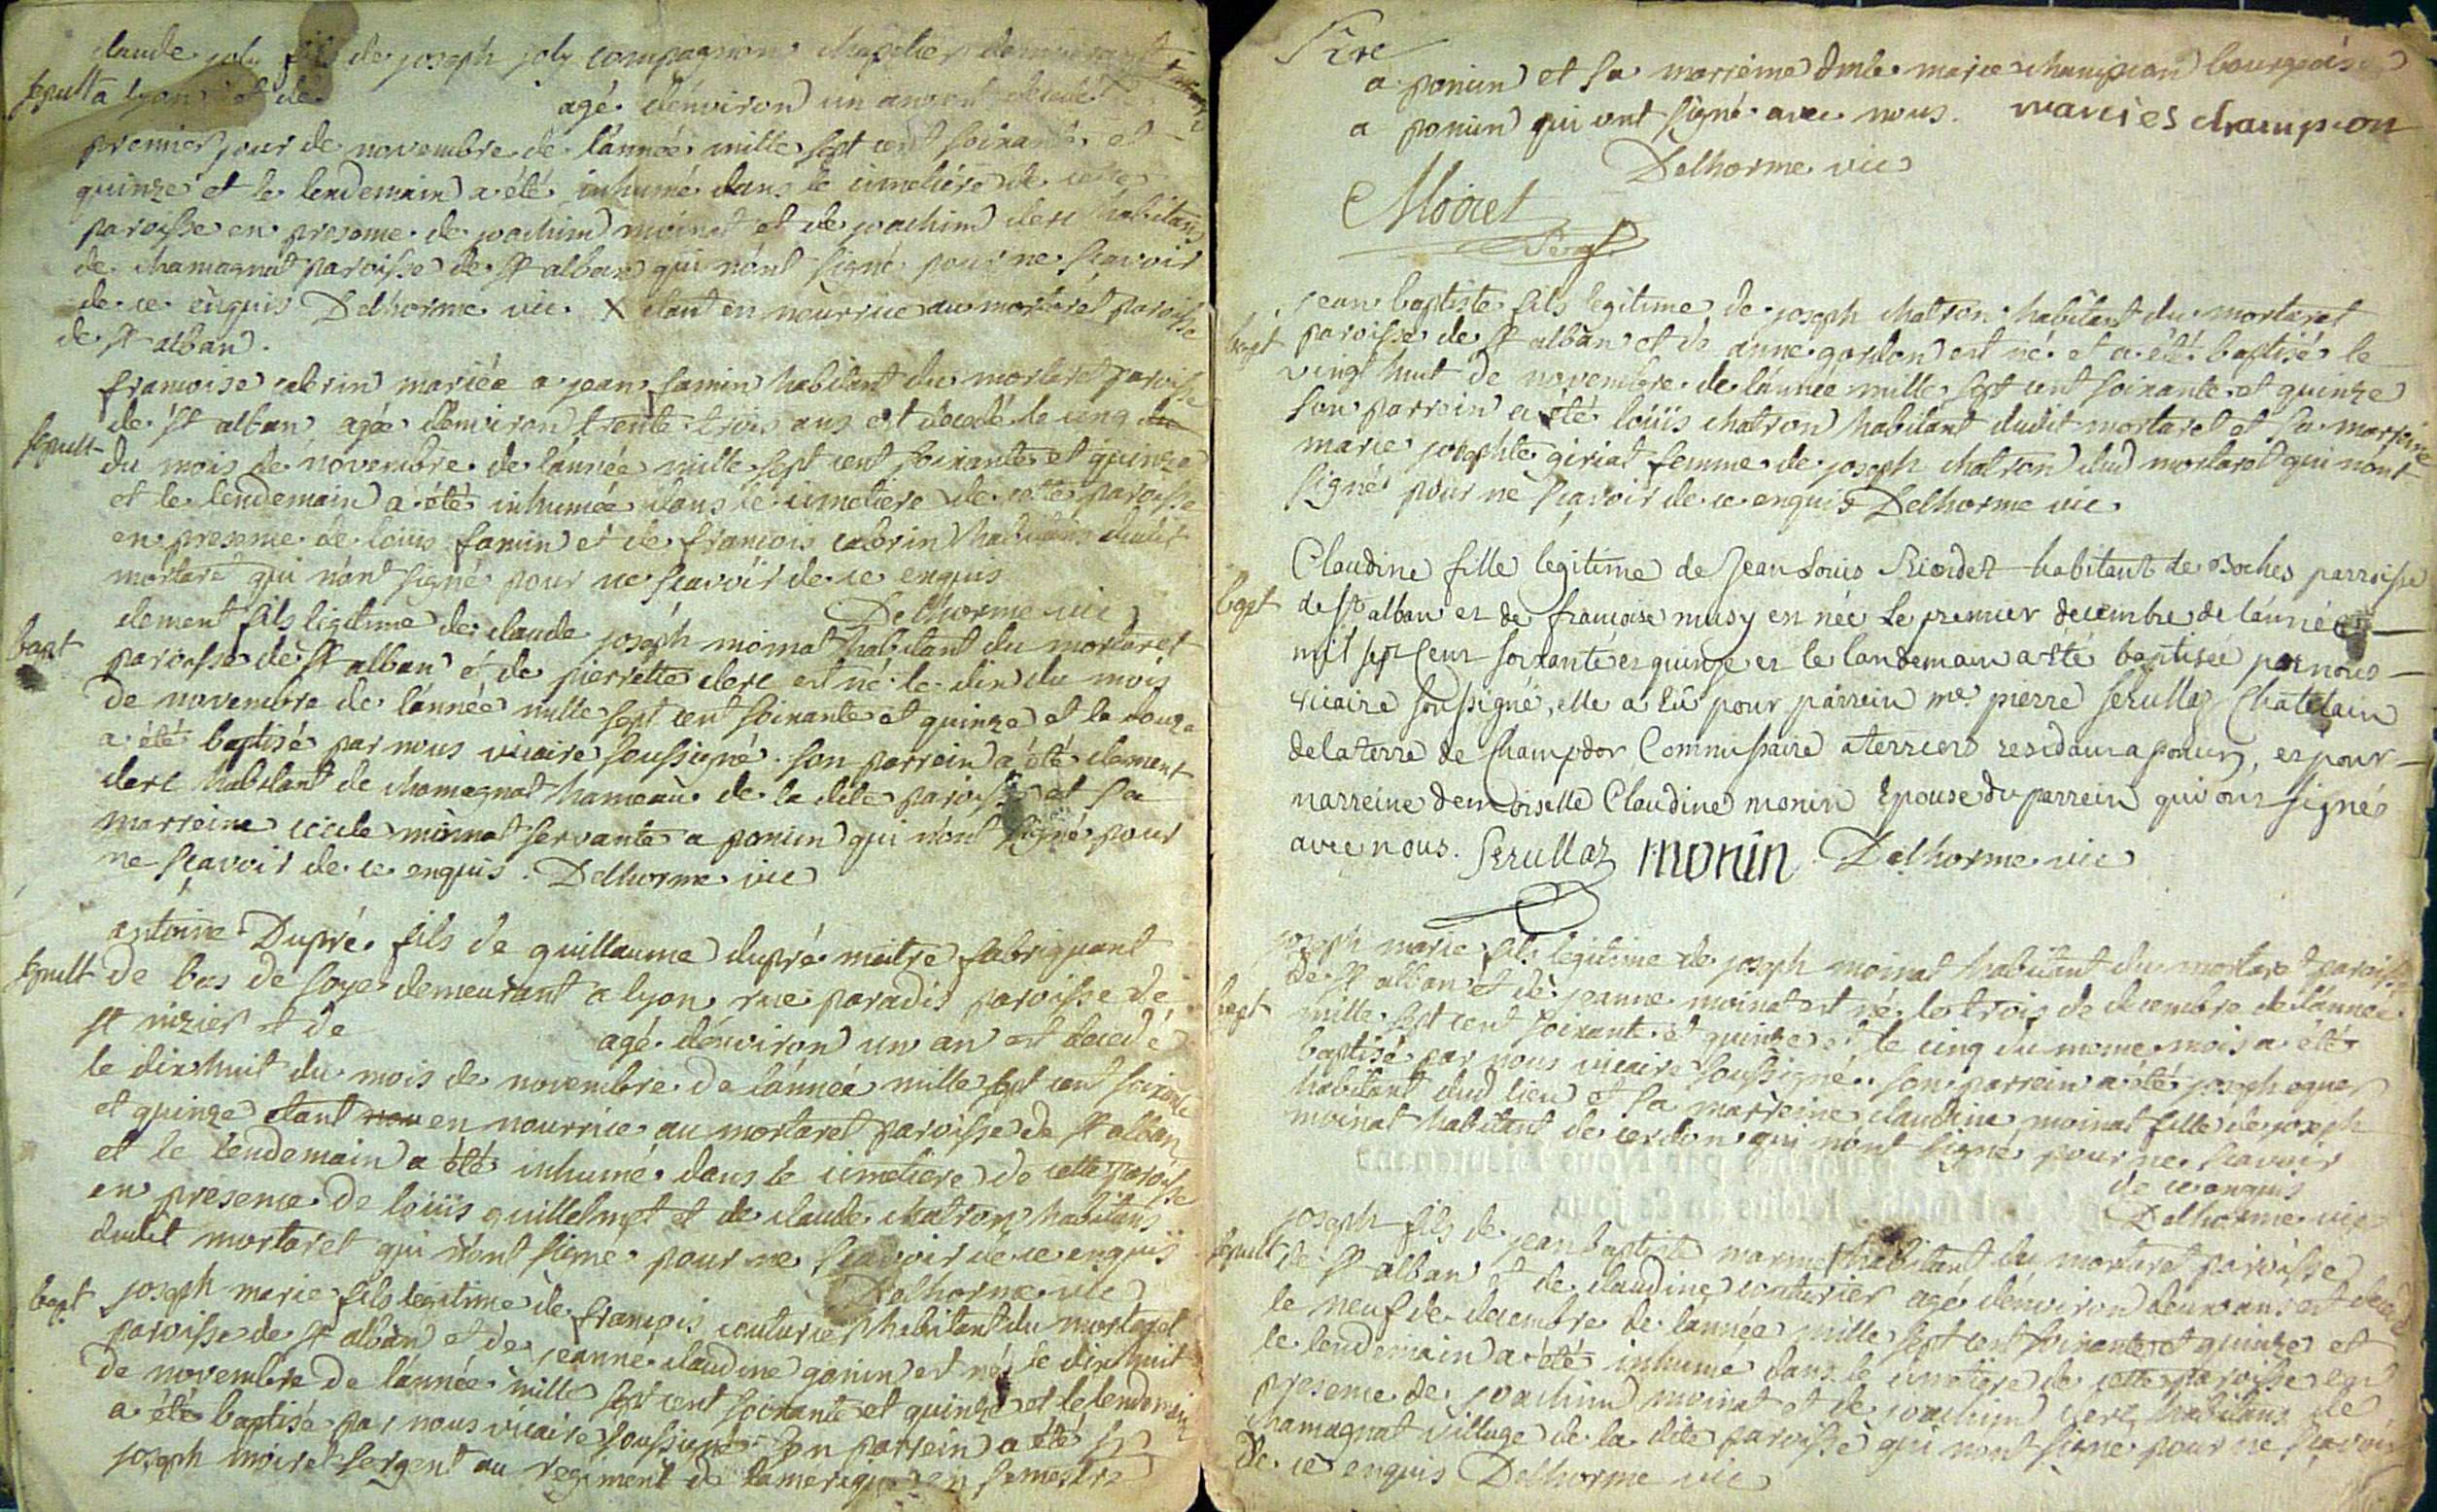 claude joly fils de joseph joly compagnion chapelier demeurant
sepult a lyon et de agé d'environ un an est decedé
premier jour de novembre de l'année mille sept cent soixante et
quinze et le lendemain a été inhumé dans le cimetière de cette
paroisse en presence de joachim moinat et de joachim clerc habitans
de chamagnat paroisse de st alban qui n'ont signé pour ne sçavoir
de ce enquis Delhorme vic. X etant en nourrice au mortaret paroisse
de st alban.
francoise cabrin mariée a jean famin habitant du mortaret paroisse
de st alban agée d'environ trente trois ans est decedé le cinq du
sepult
du mois de novembre de l'année mille sept cent soixante et quinze
et le lendemain a été inhumée dans le cimetiere de cette paroisse
en presence de loüis famin et de francois cabrin habitans dudit
mortaré qui n'ont signé pour ne sçavoir de ce enquis
Delhorme vic
clement fils legitime de claude joseph moinat habitant du mortaret
bapt paroisse de st alban et de pierrette clerc est né le dix du mois
de novembre de l'année mille sept cent soixante et quinze et le douze
a été baptisé par nous vicaire soussigné. son parrein a été clement
clerc habitant de chamagnat hameau de la dite paroisse et sa
marreine cecile moinat servante a poncin qui n'ont signé pour
ne sçavoir de ce enquis. Delhorme vic
antoine Dupré fils de guillaume dupré maitre fabriquant
sepult de bas de soye demeurant a lyon rue paradis paroisse de
st nizier et de agé d'environ un an est decedé
le dix huit du mois de novembre de l'année mille sept cent soixante
et quinze etant nou en nourrice au mortaret paroisse de st alban
et le lendemain a été inhumé dans le cimetiere de cette paroisse
en presence de loüis guillelmet et de claude chatron habitans
dudit mortaret qui n'ont signé pour ne sçavoir de ce enquis
Delhorme vic
bapt joseph marie fils legitime de francois couturier habitant du mortaret
paroisse de st alban et de jeanne claudine gonin est né le dix huit
de novembre de l'année mille sept cent soixante et quinze et le lendemain
a été baptisé par nous vicaire soussigné son parrein a été sr
joseph moiret sergent au regiment de l'amerique en semestre
a poncin et sa marreine dmlle marie champion bourgeoise
a poncin qui ont signé avec nous. maries champion
Delhorme vic
Moiret
Serg.t
jean baptiste fils legitime de joseph chatron habitant du mortaret
bapt paroisse de st alban et de anne gordon est né et a été baptisé le
vingt huit de novembre de l'année mille sept cent soixante et quinze
son parrein a été loüis chatron habitant dudit mortaret et sa marreine
marie josephte giriat femme de joseph chatron dud mortaret qui n'ont
signé pour ne sçavoir de ce enquis Delhorme vic.
Claudine fille legitime de Jean Louis Riondet habitant de Boches parroisse
bapt de st alban et de francoise musy en née Le premier decembre de l'année
mil sept Cent soixante et quinze et le landemain a été baptisée par nous
vicaire soussigné, elle a Eû pour parrein me pierre Serullaz Chatelain
de la terre de Champdor Commissaire a terriers residant a poncin, et pour
marreine demoiselle Claudine monin Epouse du parrein qui ont signés
avec nous. Serullaz monin Delhorme vic
joseph marie fils legitime de joseph moinat habitant du mortaret paroisse
de st alban et de jeanne moinat est né le trois de decembre de l'année
bapt mille sept cent soixante et quinze et le cinq du meme mois a été
baptisé par nous vicaire soussigné. son parrein a été joseph
habitant dud lieu et sa marreine claudine moinat fille de joseph
moinat habitant de cerdon qui n'ont signé pour ne sçavoir
de ce enquis
Delhorme vic
joseph fils de jean baptiste marmet habitant du mortaret paroisse
sepult de st alban et de claudine couturier agé d'environ deux ans est decedé
le neuf de decembre de l'année mille sept cent soixante et quinze et
le lendemain a été inhumé dans le cimetiere de cette paroisse en
presence de joachim moinat et de joachim clerc habitans de
chamagnat village de la dite paroisse qui n'ont signé pour ne sçavoir
de ce enquis Delhorme vic